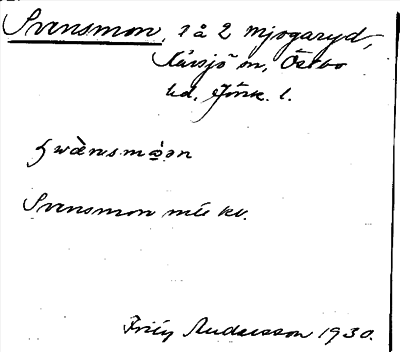 Svensmon, 1 å 2 Mjogaryd,
Kävsjö sn, Östbo
hd. Jönk. l.
swὰnsmo̯ən
Svensmon mse kv.
Andersson 1930.